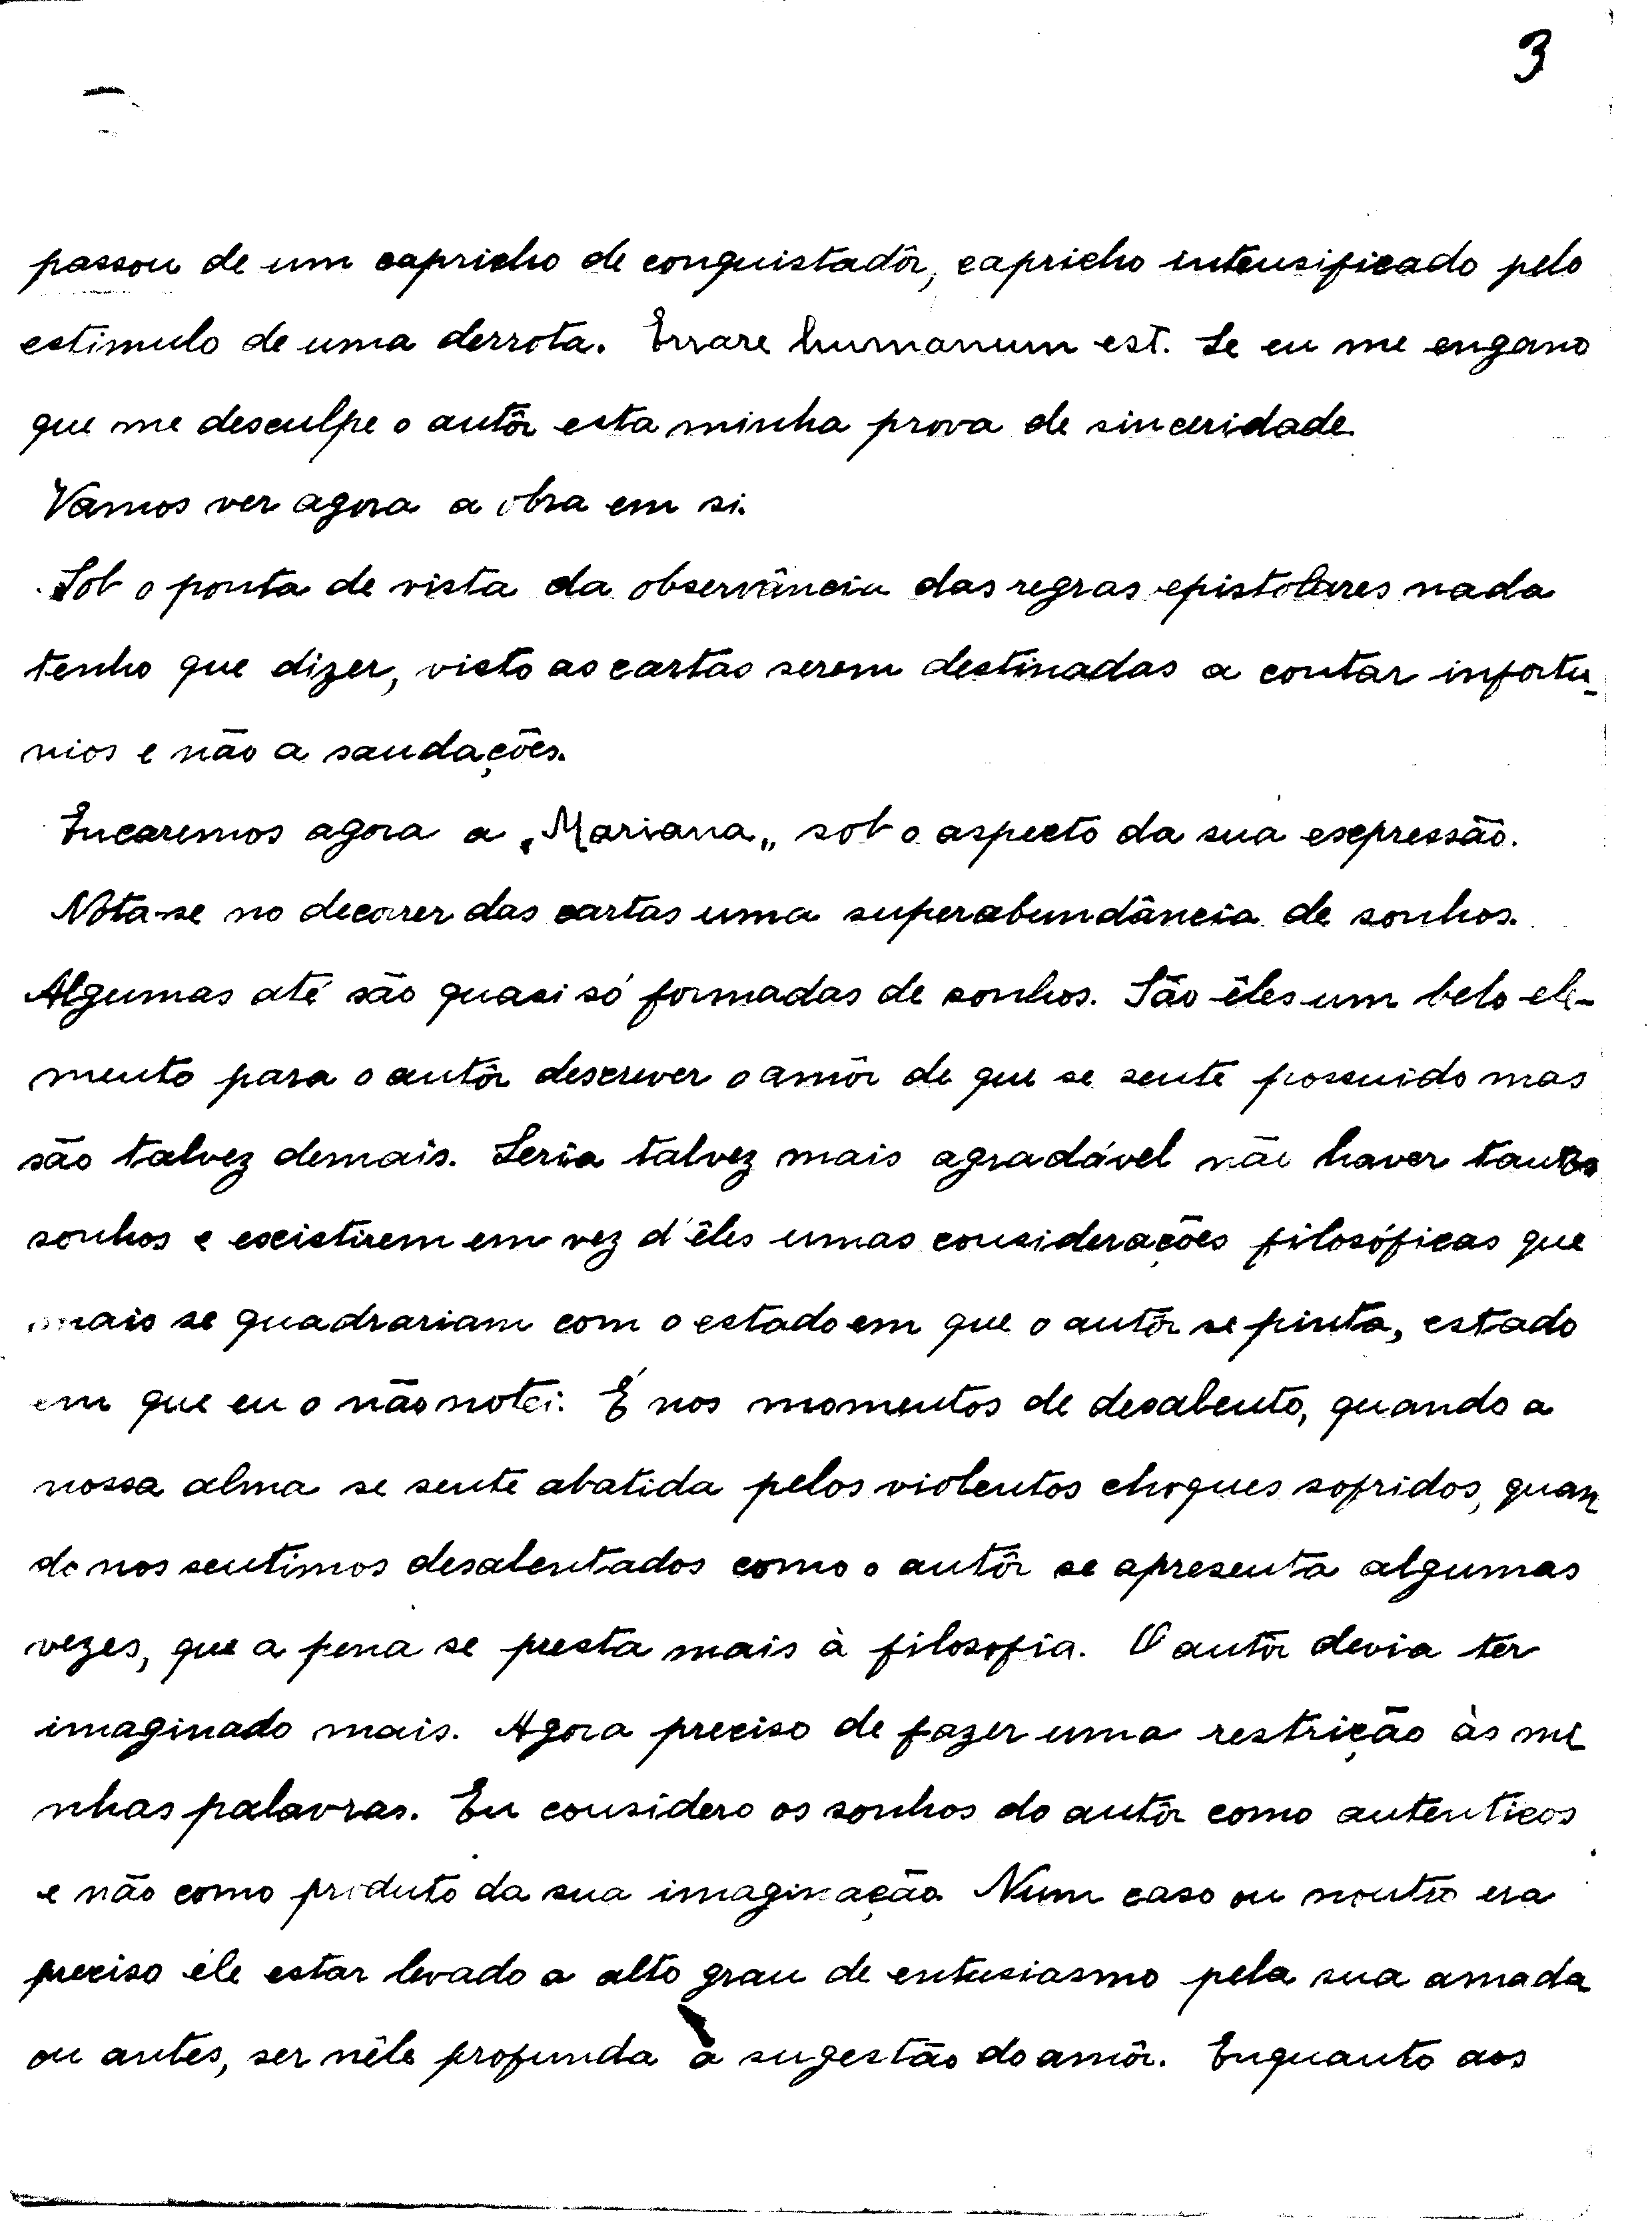 3
passou de um capricho de conquistadôr, capricho intensificado pelo
estimulo de uma derrota. Errare humanum est. Se eu me engano
que me desculpe o autôr esta minha prova de sinceridade.
Vamos ver agora a obra em si.
Sob o ponto de vista da observância das regras epistolares nada
tenho que dizer, visto as cartas serem destinadas a contar infortu-
nios e não a saudações.
Encaremos agora a "Mariana" sob o aspecto da sua expressão.
Nota-se no decorrer das cartas uma superabundância de sonhos.
Algumas até são quasi só formadas de sonhos. São êles um belo ele-
mento para o autôr descrever o amôr de que se sente possuido mas
são talvez demais. Seria talvez mais agradável não haver tantos
sonhos e existirem em vez d'êles umas considerações filosóficas que
mais se quadrariam com o estado em que o autôr se pinta, estado
em que eu o não notei. É nos momentos de desalento, quando a
nossa alma se sente abatida pelos violentos choques sofridos, quan
do nos sentimos desalentados como o autôr se apresenta algumas
vezes, que a pena se presta mais à filosofia. O autôr devia ter
imaginado mais. Agora preciso de fazer uma restrição às mi
nhas palavras. Eu considero os sonhos do autôr como autenticos
e não como produto da sua imaginação. Num caso ou noutro era
preciso êle estar levado a alto grau de entusiasmo pela sua amada
ou antes, ser nêle profunda a sugestão do amôr. Enquanto aos